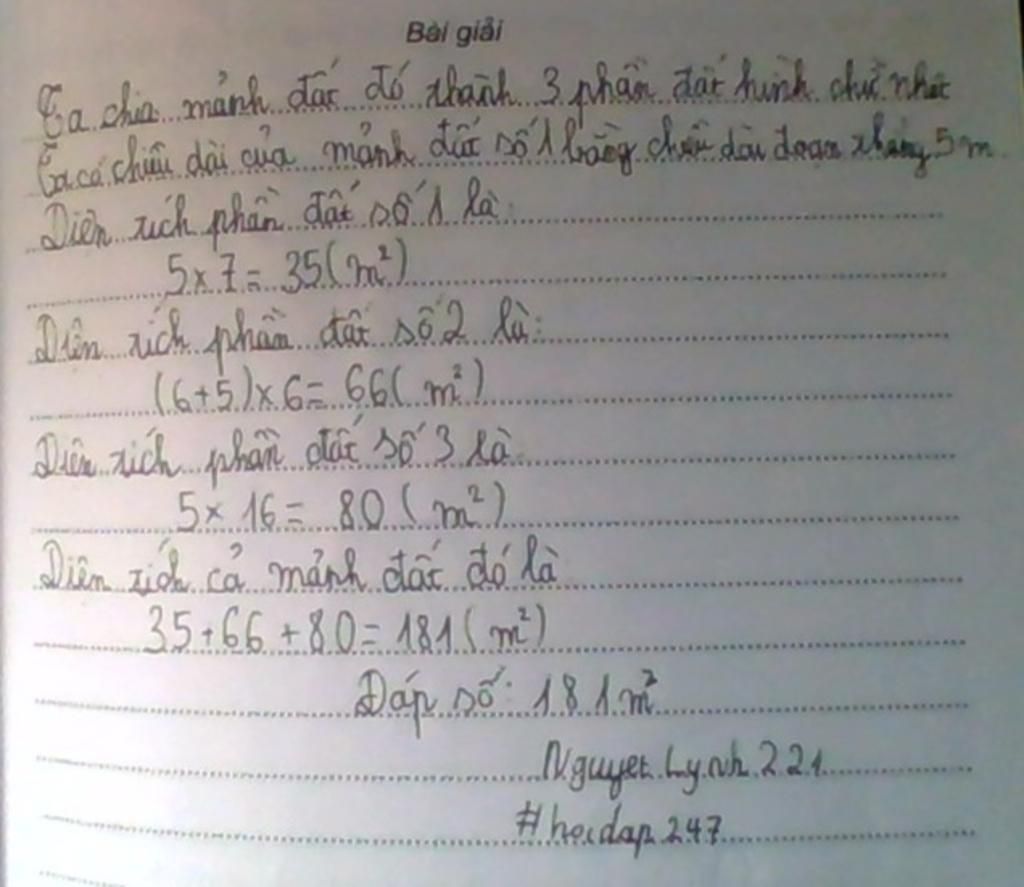 Bài giải
Ta chia mảnh đất đó thành 3 phần đất hình chữ nhật
Ta có chiều dài của mảnh đất số 1 bằng chiều dài đoạn thẳng 5 m
Diện tích phần đất số 1 là:
5 x 7 = 35 ( m²)
Diện tích phần đất số 2 là:
(6 + 5) x 6 = 66 ( m²)
Diện tích phần đất số 3 là
5 x 16 = 80 ( m²)
Diện tích cả mảnh đất đó là
35 + 66 + 80 = 181 ( m²)
Đáp số: 181 m²
Nguyet Lynh 221
#hoidap 247